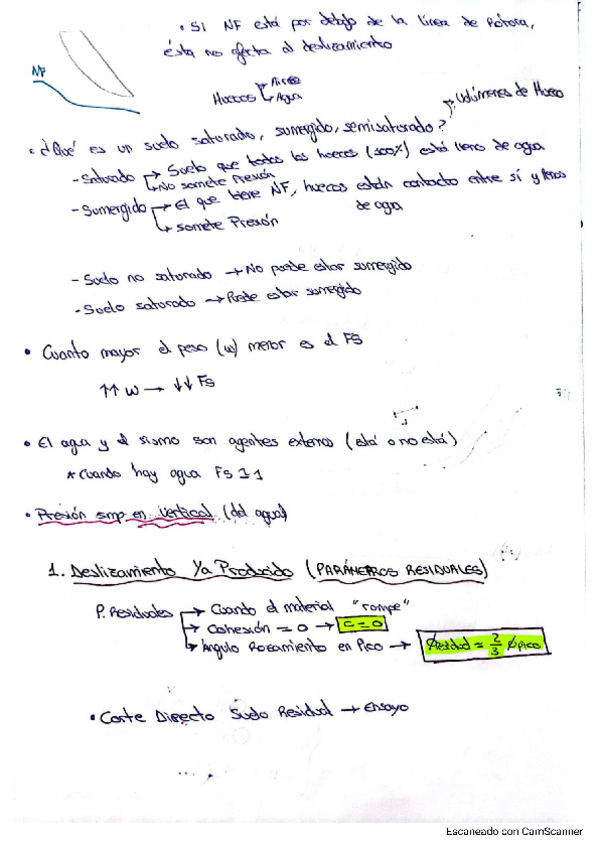 • Si NF está por debajo de la línea de Rotura,
ésta no afecta al deslizamiento
NF
Huecos → Aire
→ Agua
Volúmenes de Hueco
• ¿Qué es un suelo saturado, sumergido, semisaturado?
- Saturado → Suelo que todos los huecos (100%) está lleno de agua
→ No somete Presión
- Sumergido → El que tiene NF, huecos están contacto entre sí y llenos
de agua
→ somete Presión
- Suelo no saturado → No puede estar sumergido
- Suelo saturado → Puede estar sumergido
• Cuanto mayor el peso (w) menor es el FS
↑↑ W → ↓↓ FS
• El agua y el sismo son agentes externos (está o no está)
* Cuando hay agua FS 1.1
• Presión smp en vertical (del agua)
1. Deslizamiento Ya Producido (PARÁMETROS RESIDUALES)
P. Residuales → Cuando el material "rompe"
→ Cohesión = 0 → C = 0
→ Ángulo Rozamiento en Pico → Øresidual = 2/3 Øpico
• Corte Directo Suelo Residual → Ensayo
Escaneado con CamScanner